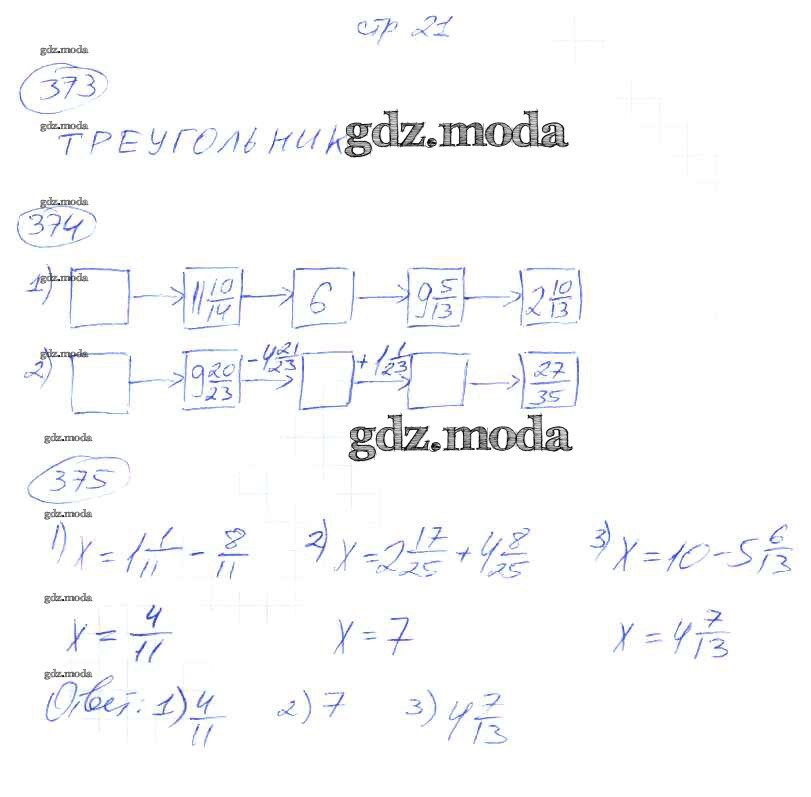 стр 21
gdz.moda
373
gdz.moda
ТРЕУГОЛЬНИК gdz.moda
gdz.moda
374
gdz.moda
1) → 11 10/14 → 6 → 9 5/13 → 2 10/13
gdz.moda
2) → 9 20/23 - 4 21/23 → + 1 1/23 → → 27/35
gdz.moda gdz.moda
375
gdz.moda
1) x = 1 1/11 - 8/11 2) x = 2 17/25 + 4 8/25 3) x = 10 - 5 6/13
gdz.moda
x = 4/11 x = 7 x = 4 7/13
gdz.moda
Ответ: 1) 4/11 2) 7 3) 4 7/13